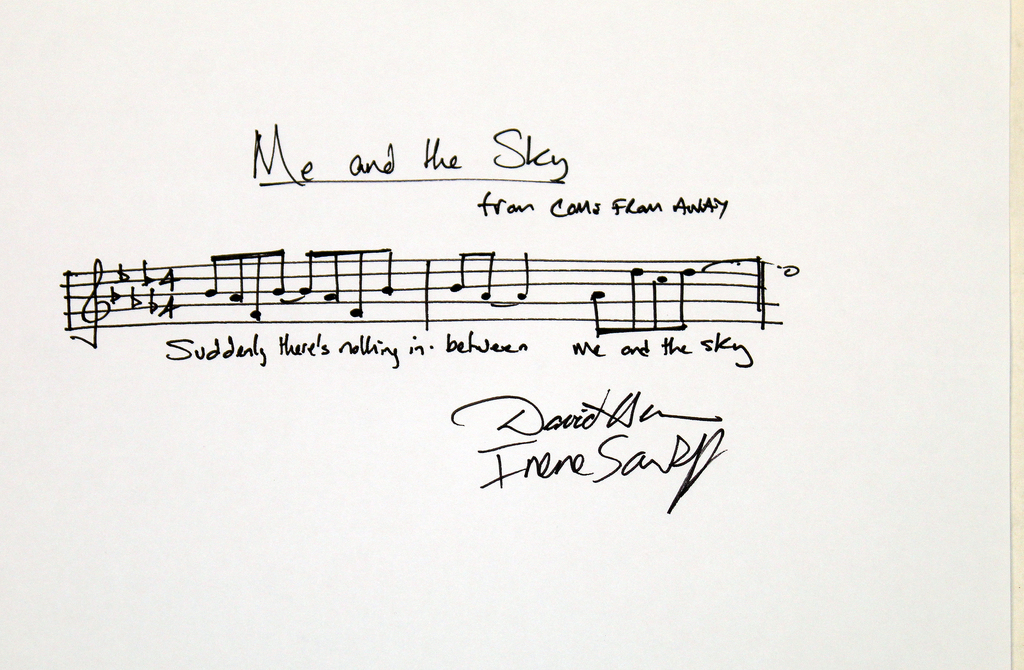 Me and the Sky
from COME FROM AWAY
4
4
Suddenly there's nothing in between me and the sky
David Hein
Irene Sankoff